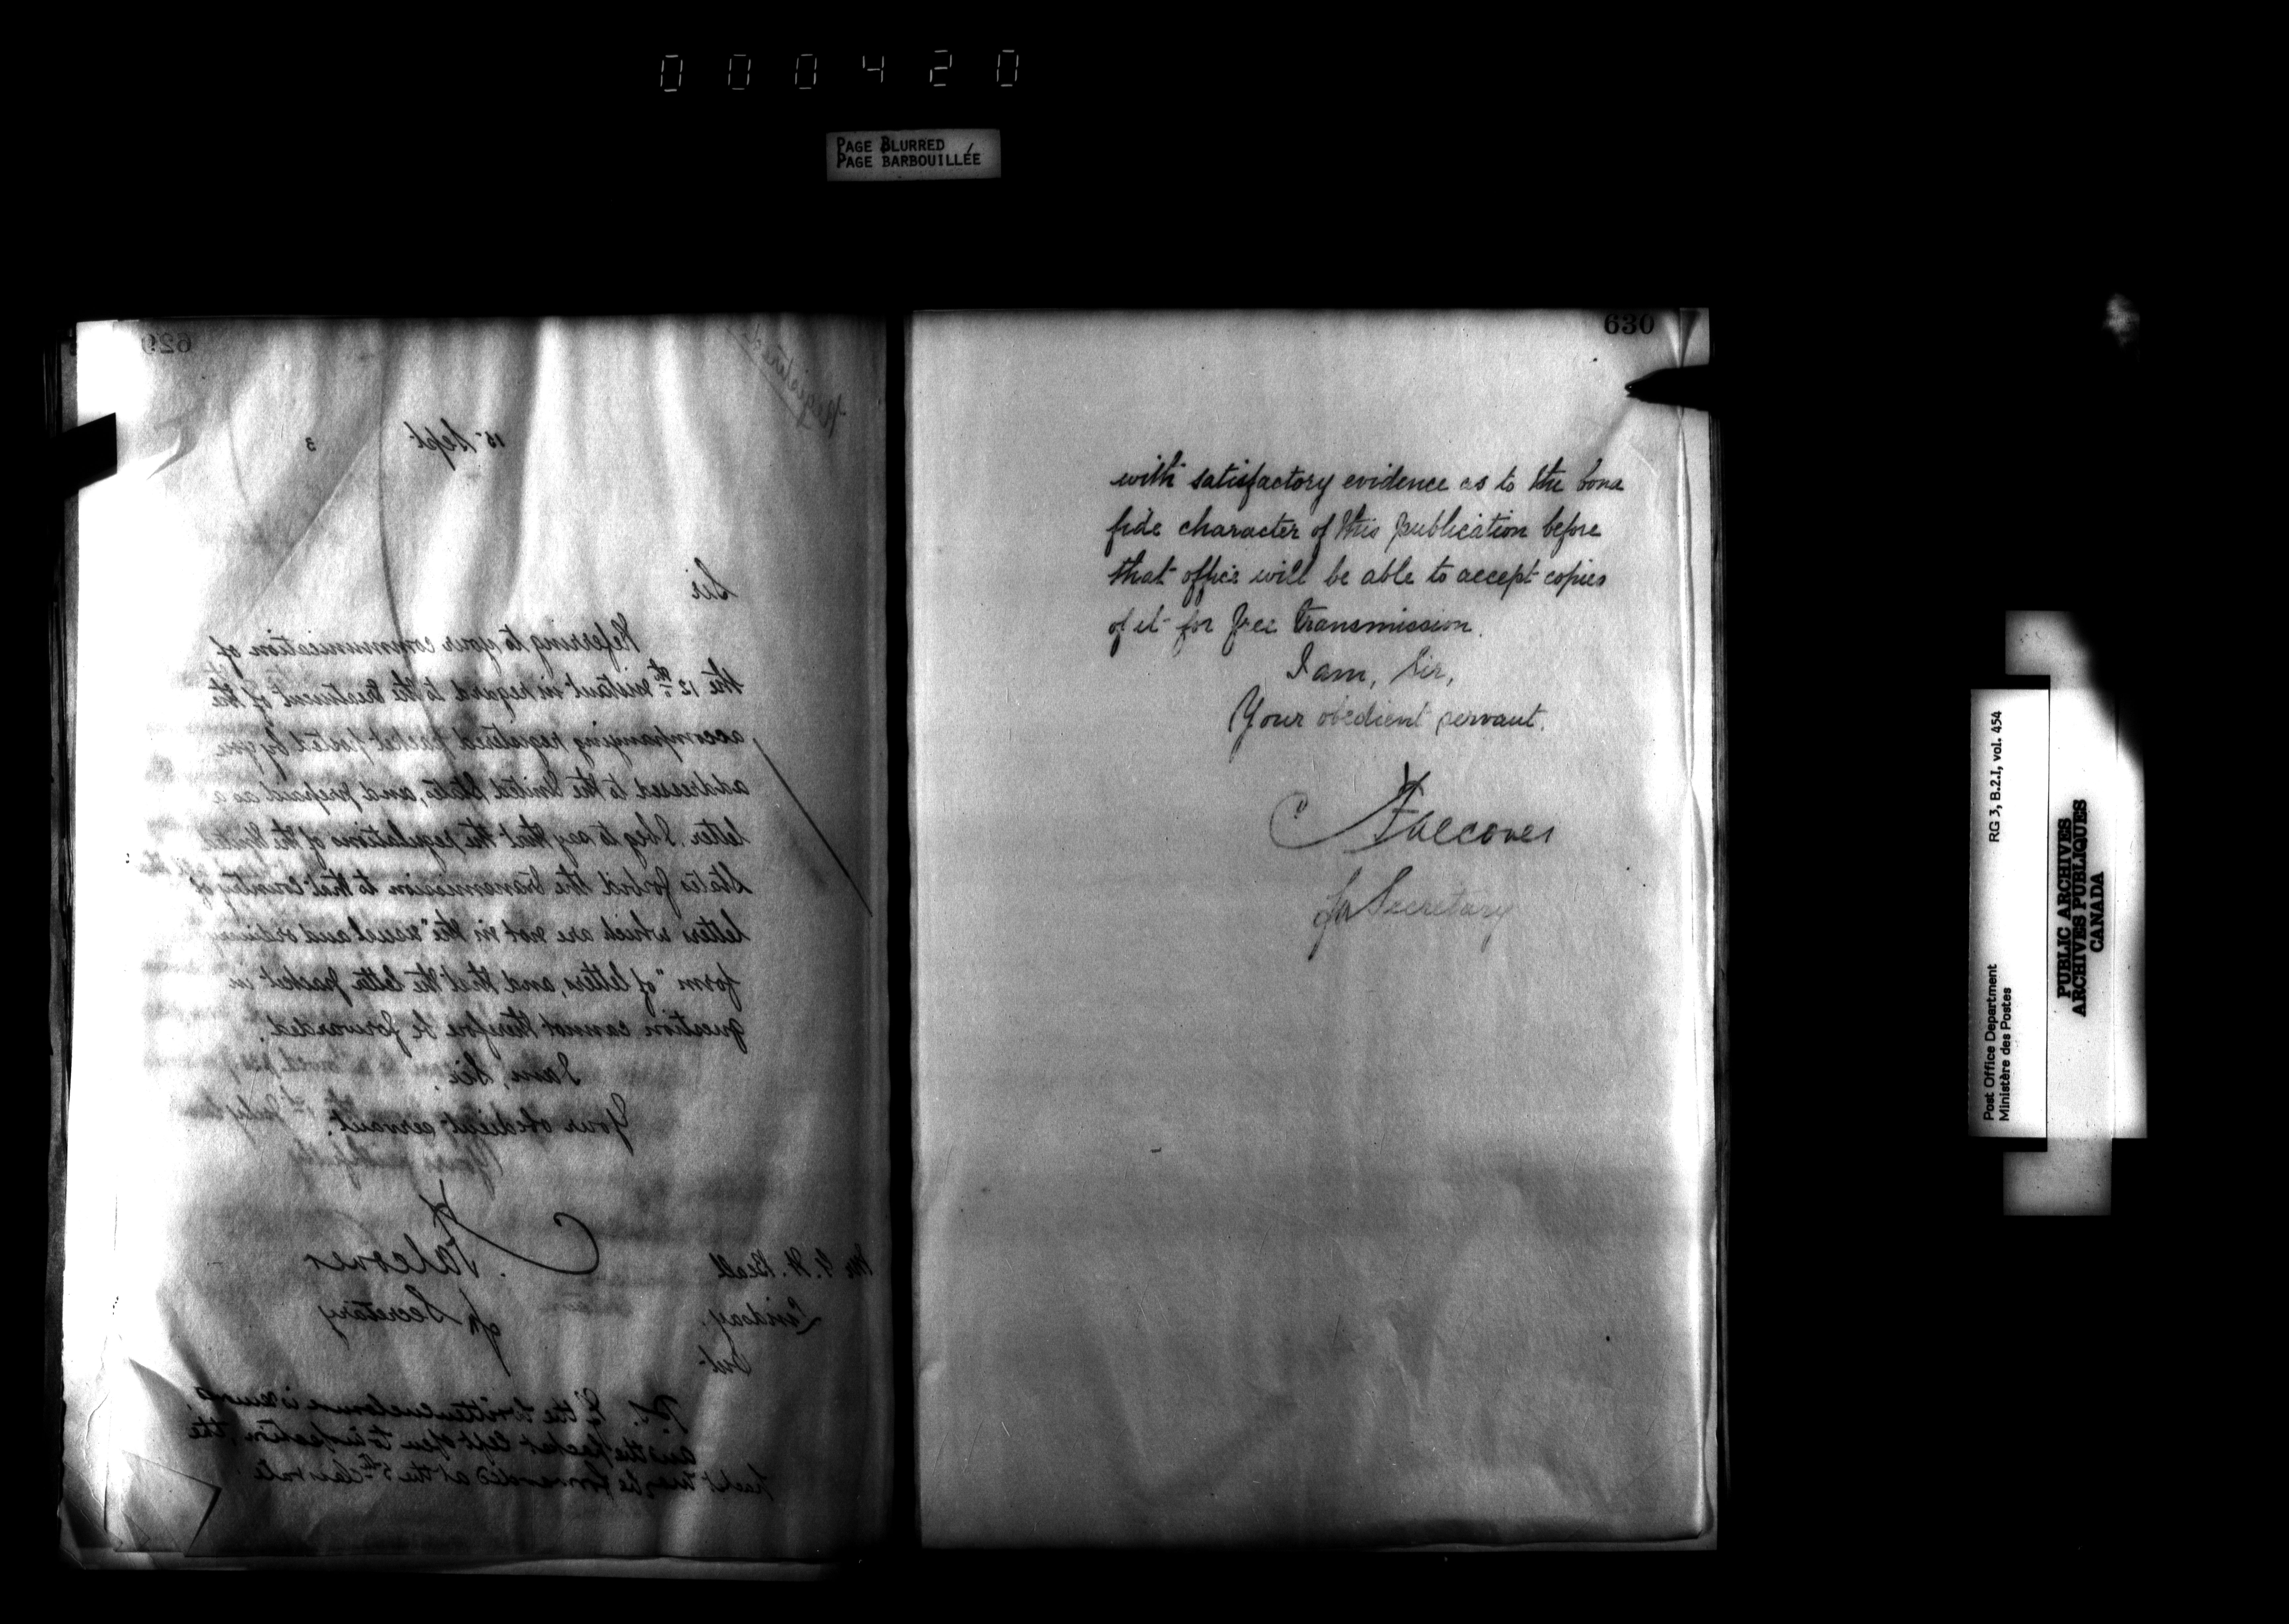 000420
PAGE BLURRED
PAGE BARBOUILLÉE
629
Registered
15 Sept 3
Sir
Referring to your communication of
the 12th instant in regard to the treatment of the
accompanying registered packet posted by you
addressed to the United States, and prepaid as a
letter. I beg to say that the regulations of the United
States forbid the transmission to that Country of
letters which are not in the "usual and ordinary
form" of letters, and that the letter packet in
question cannot therefore be forwarded.
I am, Sir,
Your obedient servant.
Falconer
for Secretary
Mr G. H. Beall
Lindsay.
Ont
P.S. If the written enclosure is
and the packet left open to inspection, the
packet may be forwarded at the 5th class rate
630
with satisfactory evidence as to the bona
fide character of this publication before
that office will be able to accept copies
of it for free transmission.
I am, Sir,
Your obedient servant.
Falconer
for Secretary
Post Office Department
Ministère des Postes
RG 3, B.2.I, vol. 454
PUBLIC ARCHIVES
ARCHIVES PUBLIQUES
CANADA